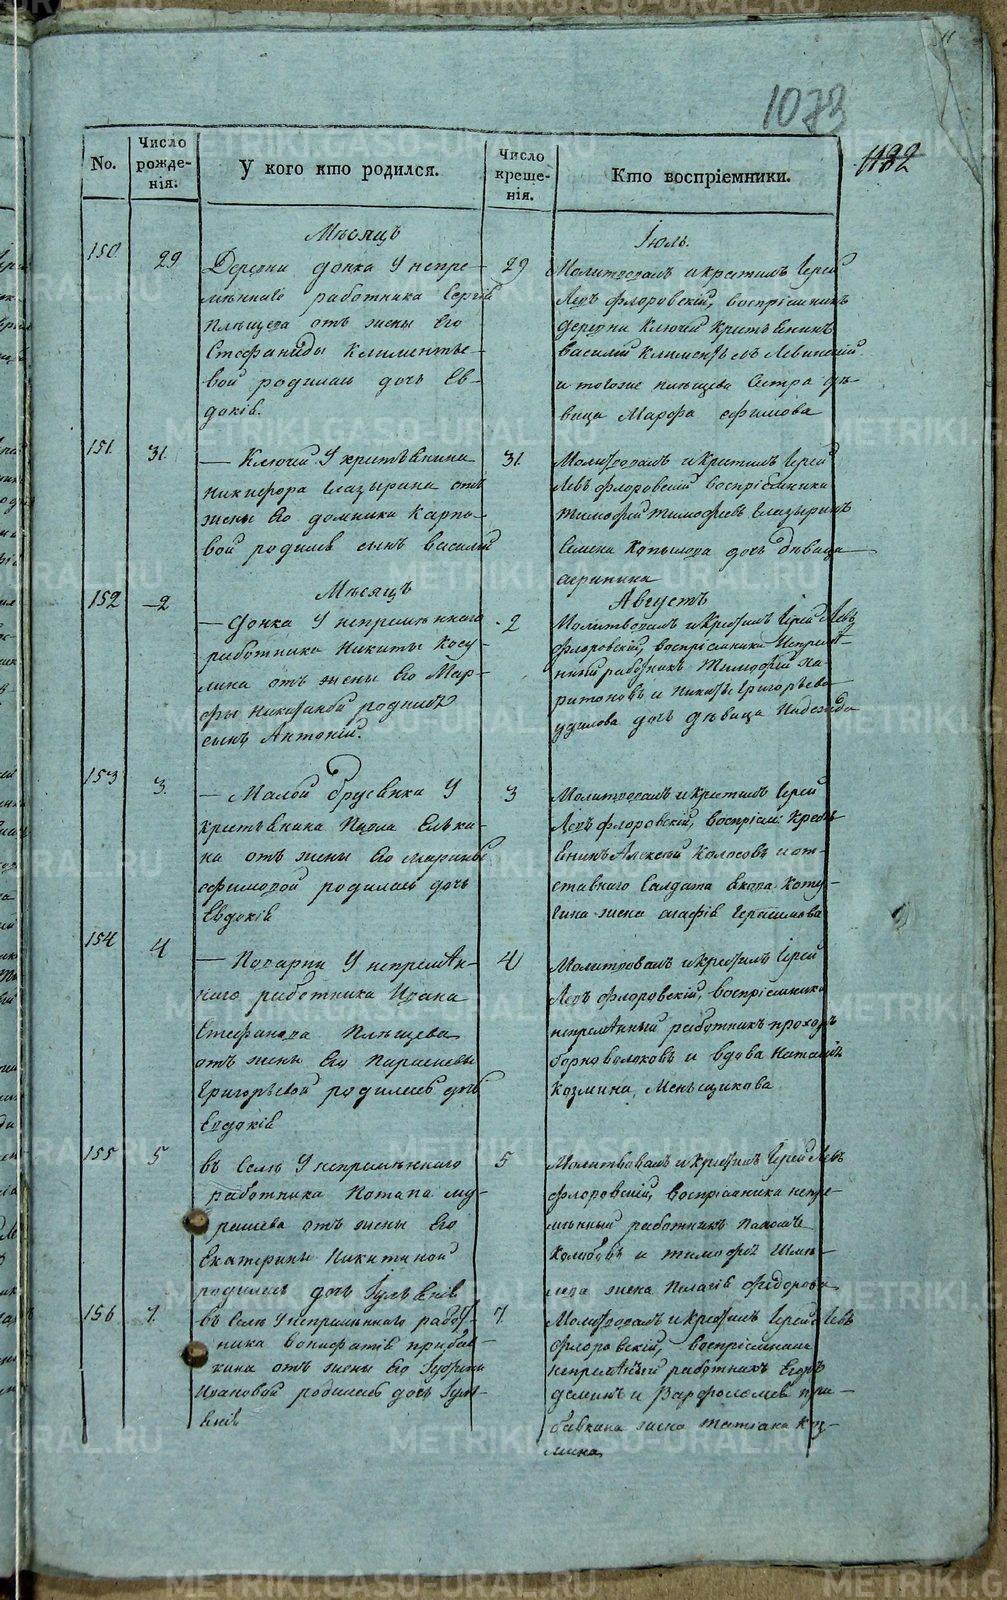 1073
1182
No.
Число рожде-нія.
У кого кто родился.
Число креще-нія.
Кто воспріемники.
Мѣсяцъ
Іюль.
150
29
Деревни Донка У непре-
мѣннаго работника Сергія
Плѣщева отъ жены Его
Стефаниды Климентье-
вой родилась дочь Ев-
докія.
29
Молитвовалъ и крестилъ Іерей
Левъ Флоровскій, воспріемникъ
деревни Ключей крестьянинъ
Василій Климентьевъ Левинскій
и тогоже Плѣщева Сестра дѣ-
вица Марфа Ефимова
151.
31.
— Ключей У крестьянина
Никифора Глазырина отъ
жены Его Домники Карпо-
вой родился сынъ Василій
31.
Молитвовалъ и крестилъ Іерей
Левъ Флоровскій воспріемники
Тимофей Тимофеевъ Глазыринъ
Семена Копылова дочь дѣвица
Агрипина
Мѣсяцъ
Августъ
152
2
— Донка У непремѣннаго
работника Никиты Косу-
лина отъ жены Его Мар-
фы Никитиной родился
сынъ Антоній.
2
Молитвовалъ и крестилъ Іерей Левъ
Флоровскій, воспріемники Непремѣ-
нный работникъ Тимофей Ха-
ритоновъ и Никиты Григорьева
Удилова дочь дѣвица Надежда
153
3.
— Малой Брусянки У
крестьянина Павла Ельки-
на отъ жены Его Марины
Ефимовой родилась дочь
Евдокія
3
Молитвовалъ и крестилъ Іерей
Левъ Флоровскій, воспріем: кресть
янинъ Алексѣй Колосовъ и от-
ставнаго Солдата Котю-
гина жена Агафія Герасимова
154
4
— Поварни У непремѣн-
наго работника Ивана
Стефанова Плѣщева
отъ жены Его Парасковьи
Григорьевой родилась дочь
Евдокія
4
Молитвовалъ и крестилъ Іерей
Левъ Флоровскій, воспріемники
непремѣнный работникъ Прохоръ
Борноволоковъ и вдова Наталія
Козмина Меньщикова
155
5
въ Селѣ У непремѣннаго
работника Потапа
отъ жены Его
Екатерины Никитиной
родилась дочь Іуліянія
5
Молитвовалъ и крестилъ Іерей Левъ
Флоровскій, воспріемники непре-
мѣнный работникъ
и Тимофея
жена Пелагія Федорова
156
7.
въ Селѣ У непремѣннаго работ-
ника Вонифатія Прибав-
кина отъ жены Его
Ивановой родилась дочь Іулі-
янія
7.
Молитвовалъ и крестилъ Іерей Левъ
Флоровскій, воспріемники
непремѣнный работникъ Егоръ
Деминъ и Варфоломея При-
бавкина жена Татіана Коз-
мина
METRIKI.GASO-URAL.RU